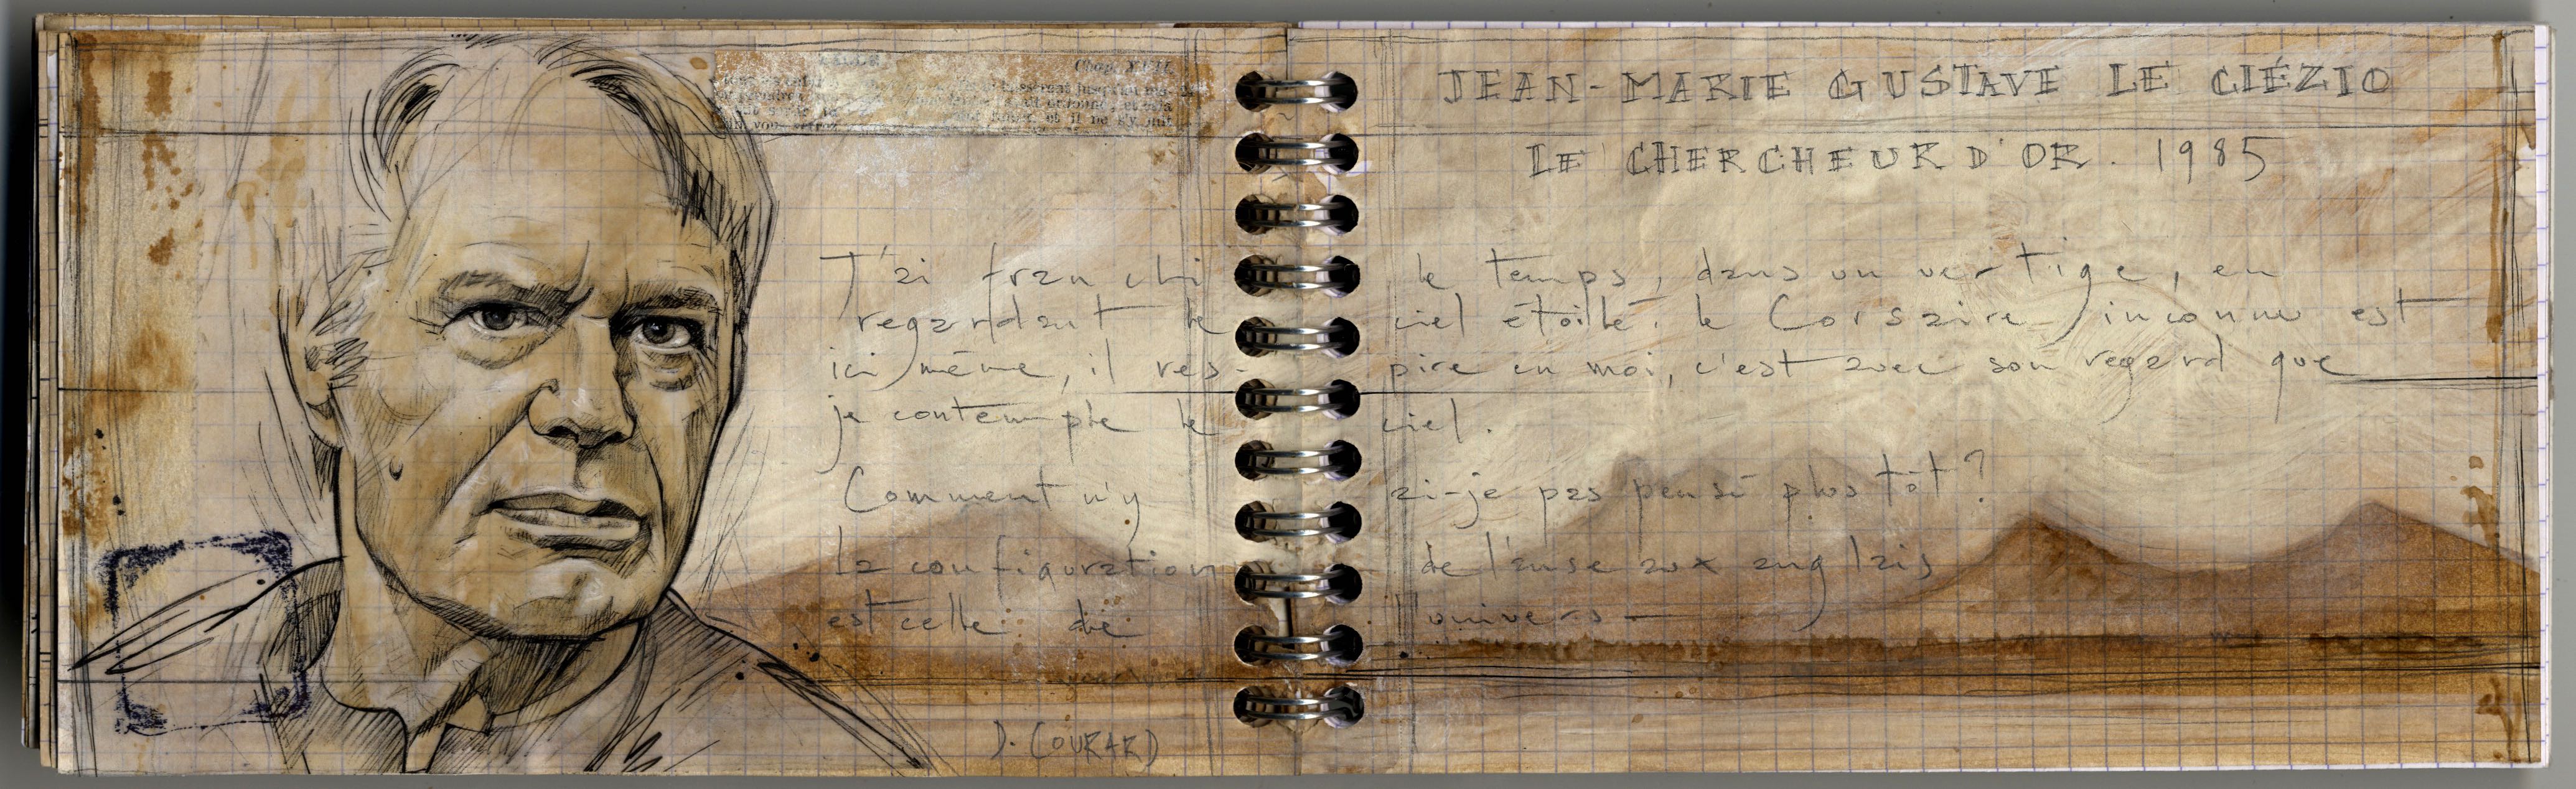 JEAN-MARIE GUSTAVE LE CLÉZIO
LE CHERCHEUR D'OR. 1985
J'ai franchi le temps, dans un vertige, en
regardant le ciel étoilé. le Corsaire inconnu est
ici même, il res-pire en moi, c'est avec son regard que
je contemple le ciel.
Comment n'y ai-je pas pensé plus tôt ?
la configuration de l'anse aux anglais
est celle de l'univers —
D. COURARD